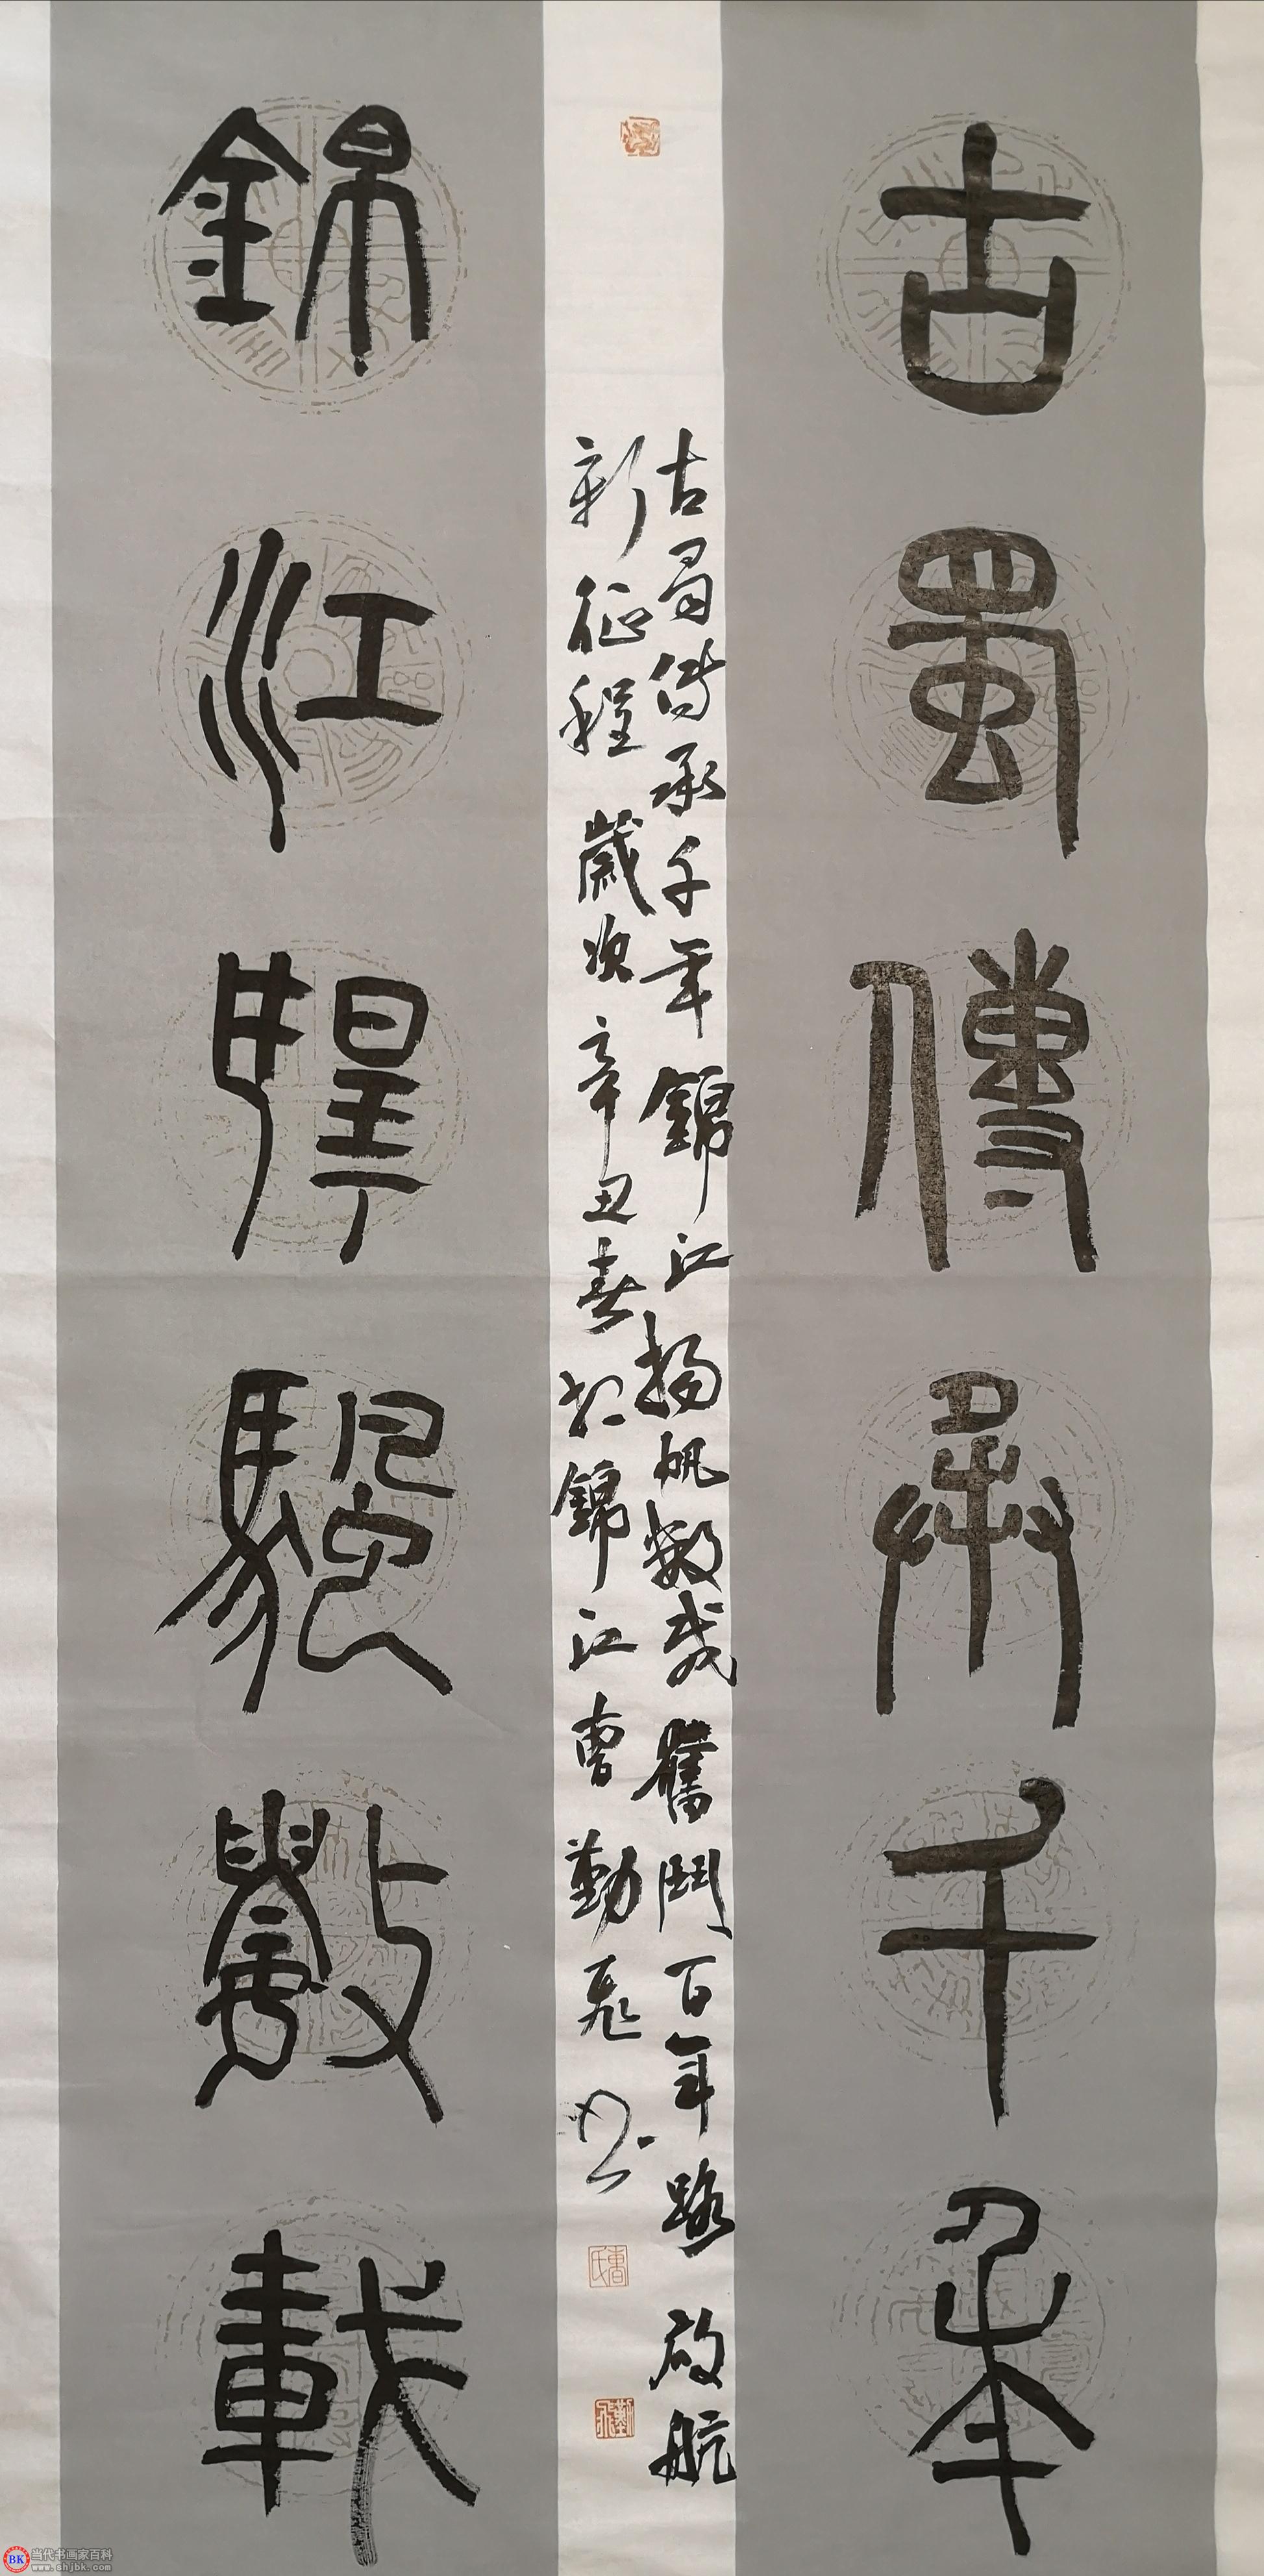 古蜀傳承千年
錦江揚帆數載
古蜀傳承千年錦江揚帆數載奮鬥百年路啟航
新征程 歲次辛丑春於錦江曹勤飛书
曹氏
當代书画家百科
www.shjbk.com